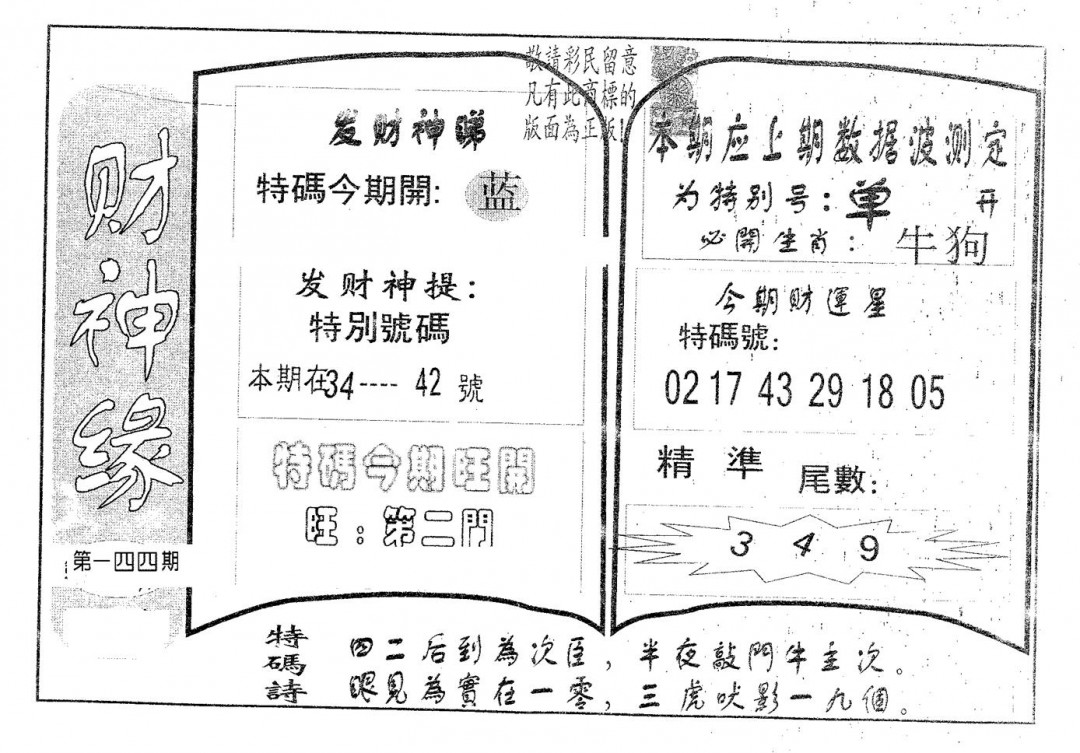 财神缘
第一四四期
敬請彩民留意
凡有此商標的
版面為正版！
发财神睇
特碼今期開: 蓝
发财神提：
特别號碼
本期在34---- 42 號
特碼今期旺開
旺：第二門
本期应上期数据波测定
为特别号：单 开
必開生肖：牛狗
今期财運星
特碼號:
02 17 43 29 18 05
精準 尾數:
3 4 9
特碼詩
四二后到為次臣，半夜敲門牛主次。
眼見為實在一零，三虎吠影一九個。